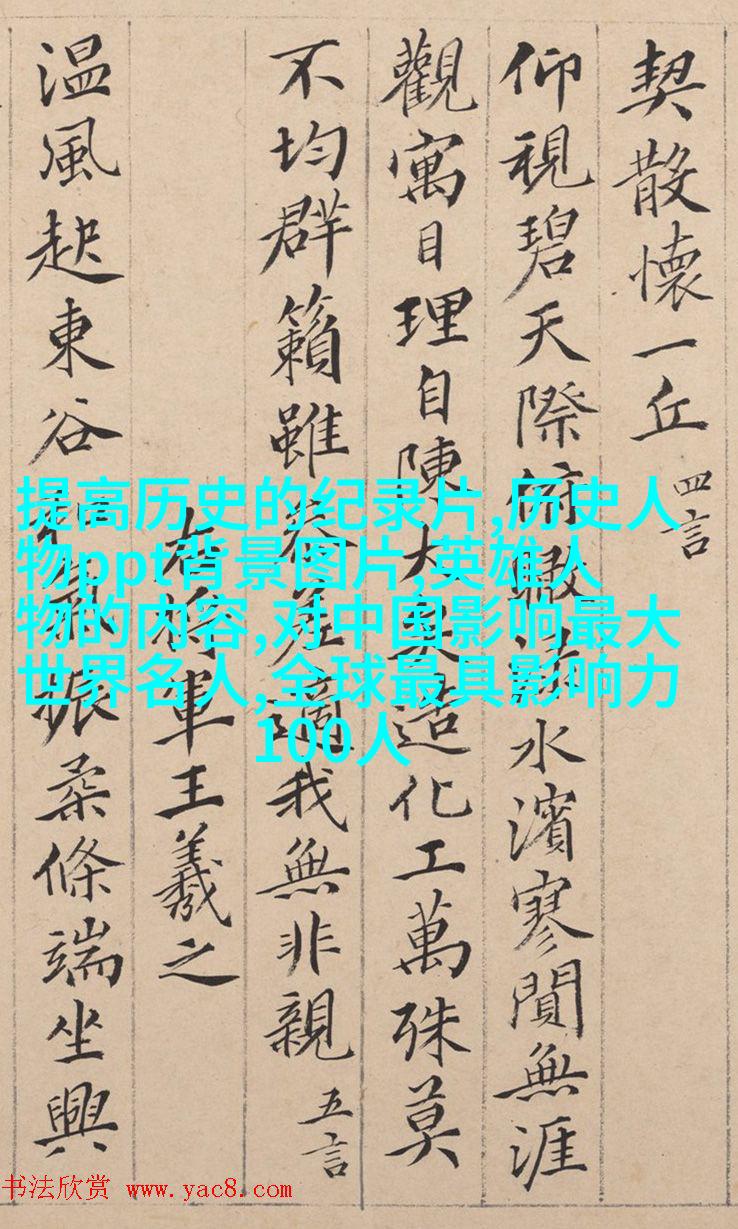 契散懷一丘 四言
仰視碧天際俯瞰水濱寥閴無涯
觀寓目理自陳大矣造化工萬殊莫
不均群籟雖參差適我無非親 五言
右將軍王羲之
温風起東谷和氣振柔條端坐興
提高历史的纪录片,历史人
物ppt背景图片,英雄人
物的内容,对中国影响最大
世界名人,全球最具影响力
100人
书法欣赏 www.yac8.com